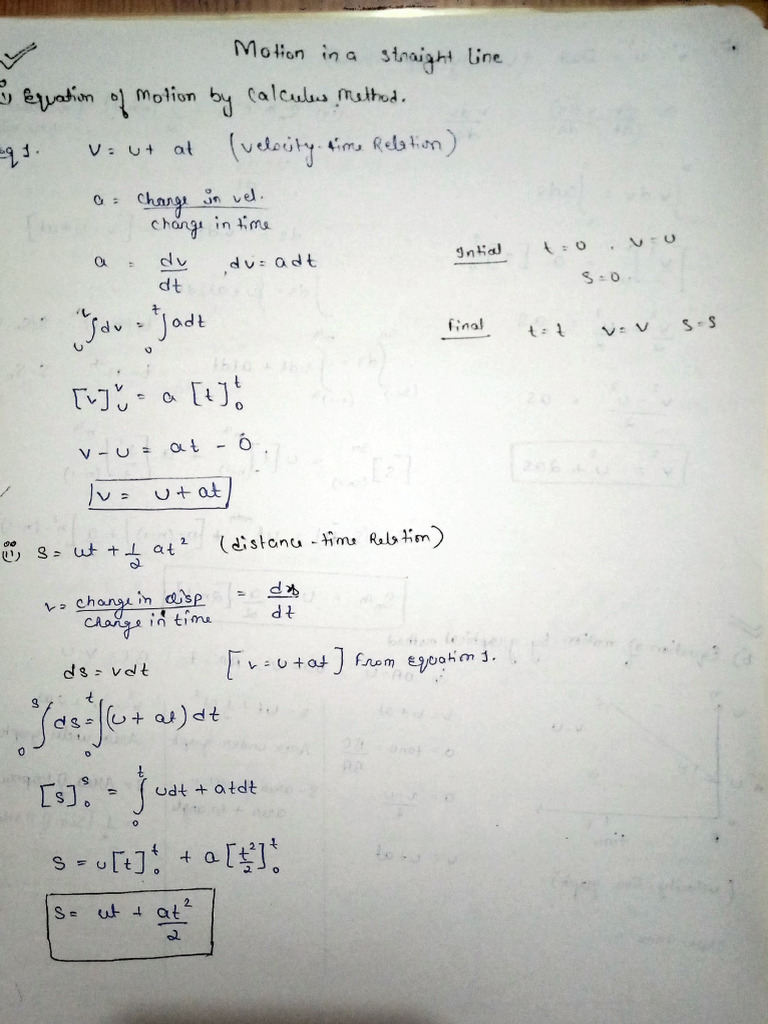 Motion in a straight line
i) Equation of Motion by Calculus Method.
eq 1. v = u + at (velocity-time Relation)
a = change in vel. / change in time
a = dv/dt , dv = a dt
Intial t = 0 , v = u
s = 0.
ᵤ∫ᵛ dv = ₀∫ᵗ a dt
Final t = t v = v s = s
[v]ᵤᵛ = a [t]₀ᵗ
v - u = at - 0.
v = u + at
ii) s = ut + 1/2 at² (distance-time Relation)
v = change in disp / change in time = ds/dt
ds = vdt [v = u + at] From equation 1.
₀∫ˢ ds = ₀∫ᵗ (u + at) dt
[s]₀ˢ = ₀∫ᵗ udt + atdt
s = u[t]₀ᵗ + a[t²/2]₀ᵗ
s = ut + at²/2